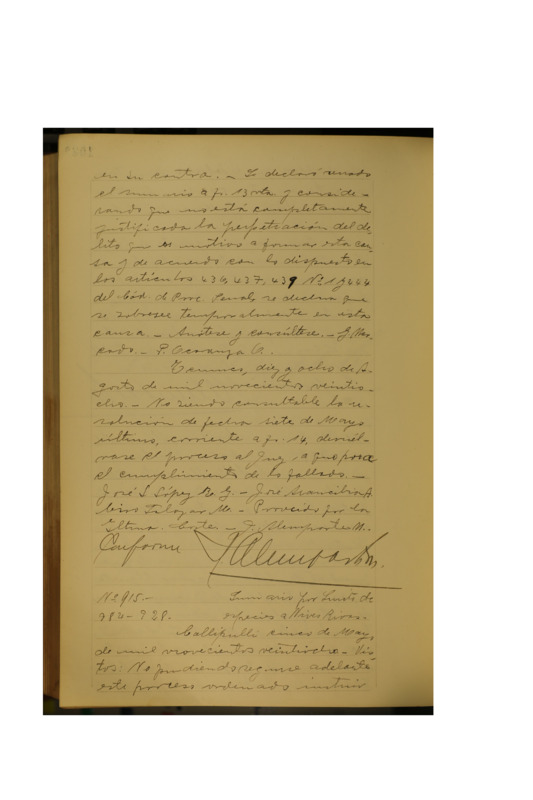 en su contra:- Se declaró cerrado
el sumario a fs. 13 vta. y conside-
rando que no está completamente
justificada la perpetración del de-
lito que dió motivo a formar esta cau-
sa y de acuerdo con lo dispuesto en
los artículos 436, 437, 439 Nº 1 y 444
del Cód. de Proc. Penal, se declara que
se sobresee temporalmente en esta
causa.- Anótese y consúltese.- G. Mer-
cado.- P. Ocaranza A.
Temuco, diez y ocho de A-
gosto de mil novecientos veintio-
cho.- No siendo consultable la re-
solución de fecha siete de Mayo
último, corriente a fs. 14, devuél-
vase el proceso al Juez a quo para
el cumplimiento de lo fallado.-
José S. López R. G.- José Arancibia A.
Salazar M.- Proveido por la
Iltma. Corte.- F. Alemparte M.
Conforme
FAlemparte M.
Nº 915.-
Sumario por hurto de
984-928.
especies a Rivas.
Collipulli cinco de Mayo,
de mil novecientos veintiocho.- Vis-
tos: No pudiendo seguirse adelante
este proceso ordenado instruir